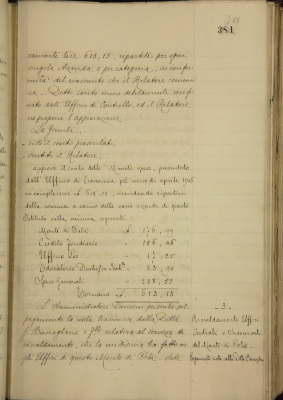 381
381
vamente lire 613,13, ripartite per ogni
singola Azienda e per categoria, in confor-
mità del riassunto che il Relatore comuni-
ca. Detto conto venne debitamente verifi-
cato dall'Ufficio di Controllo, ed il Relatore
ne propone l'approvazione.
La Giunta,
- visto il conto presentato
- sentito il Relatore
approva il conto delle minute spese, presentato
dall'Ufficio di Economia pel mese di aprile 1906
in complessive L. 613,13, mandando ripartirsi
della somma a carico delle varie aziende di questo
Istituto nella misura seguente:
Monte di Pietà L. 176,
Credito Fondiario "
Ufficio "
Educatorio Duchessa Isabella "
Spese Generali "
Tornano L. 613,13
L'Amministratore
pagamento la nota trasmessa dalla Ditta
relativa al servizio di
riscaldamento, che la medesima ha fatto ne-
gli Uffici di questo Monte di Pietà. Sede
3
Riscaldamento Uffici
Centrale e Succursale
del Monte di Pietà
Pagamento nota alla Ditta